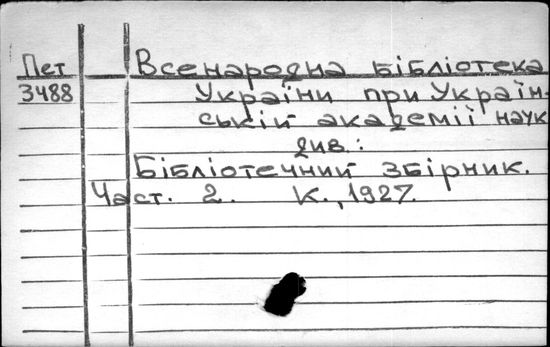 Пет Всенародна бібліотека
3488 України при Україн-
ській академії наук
див.:
Бібліотечний збірник.
Част. 2. К., 1927.